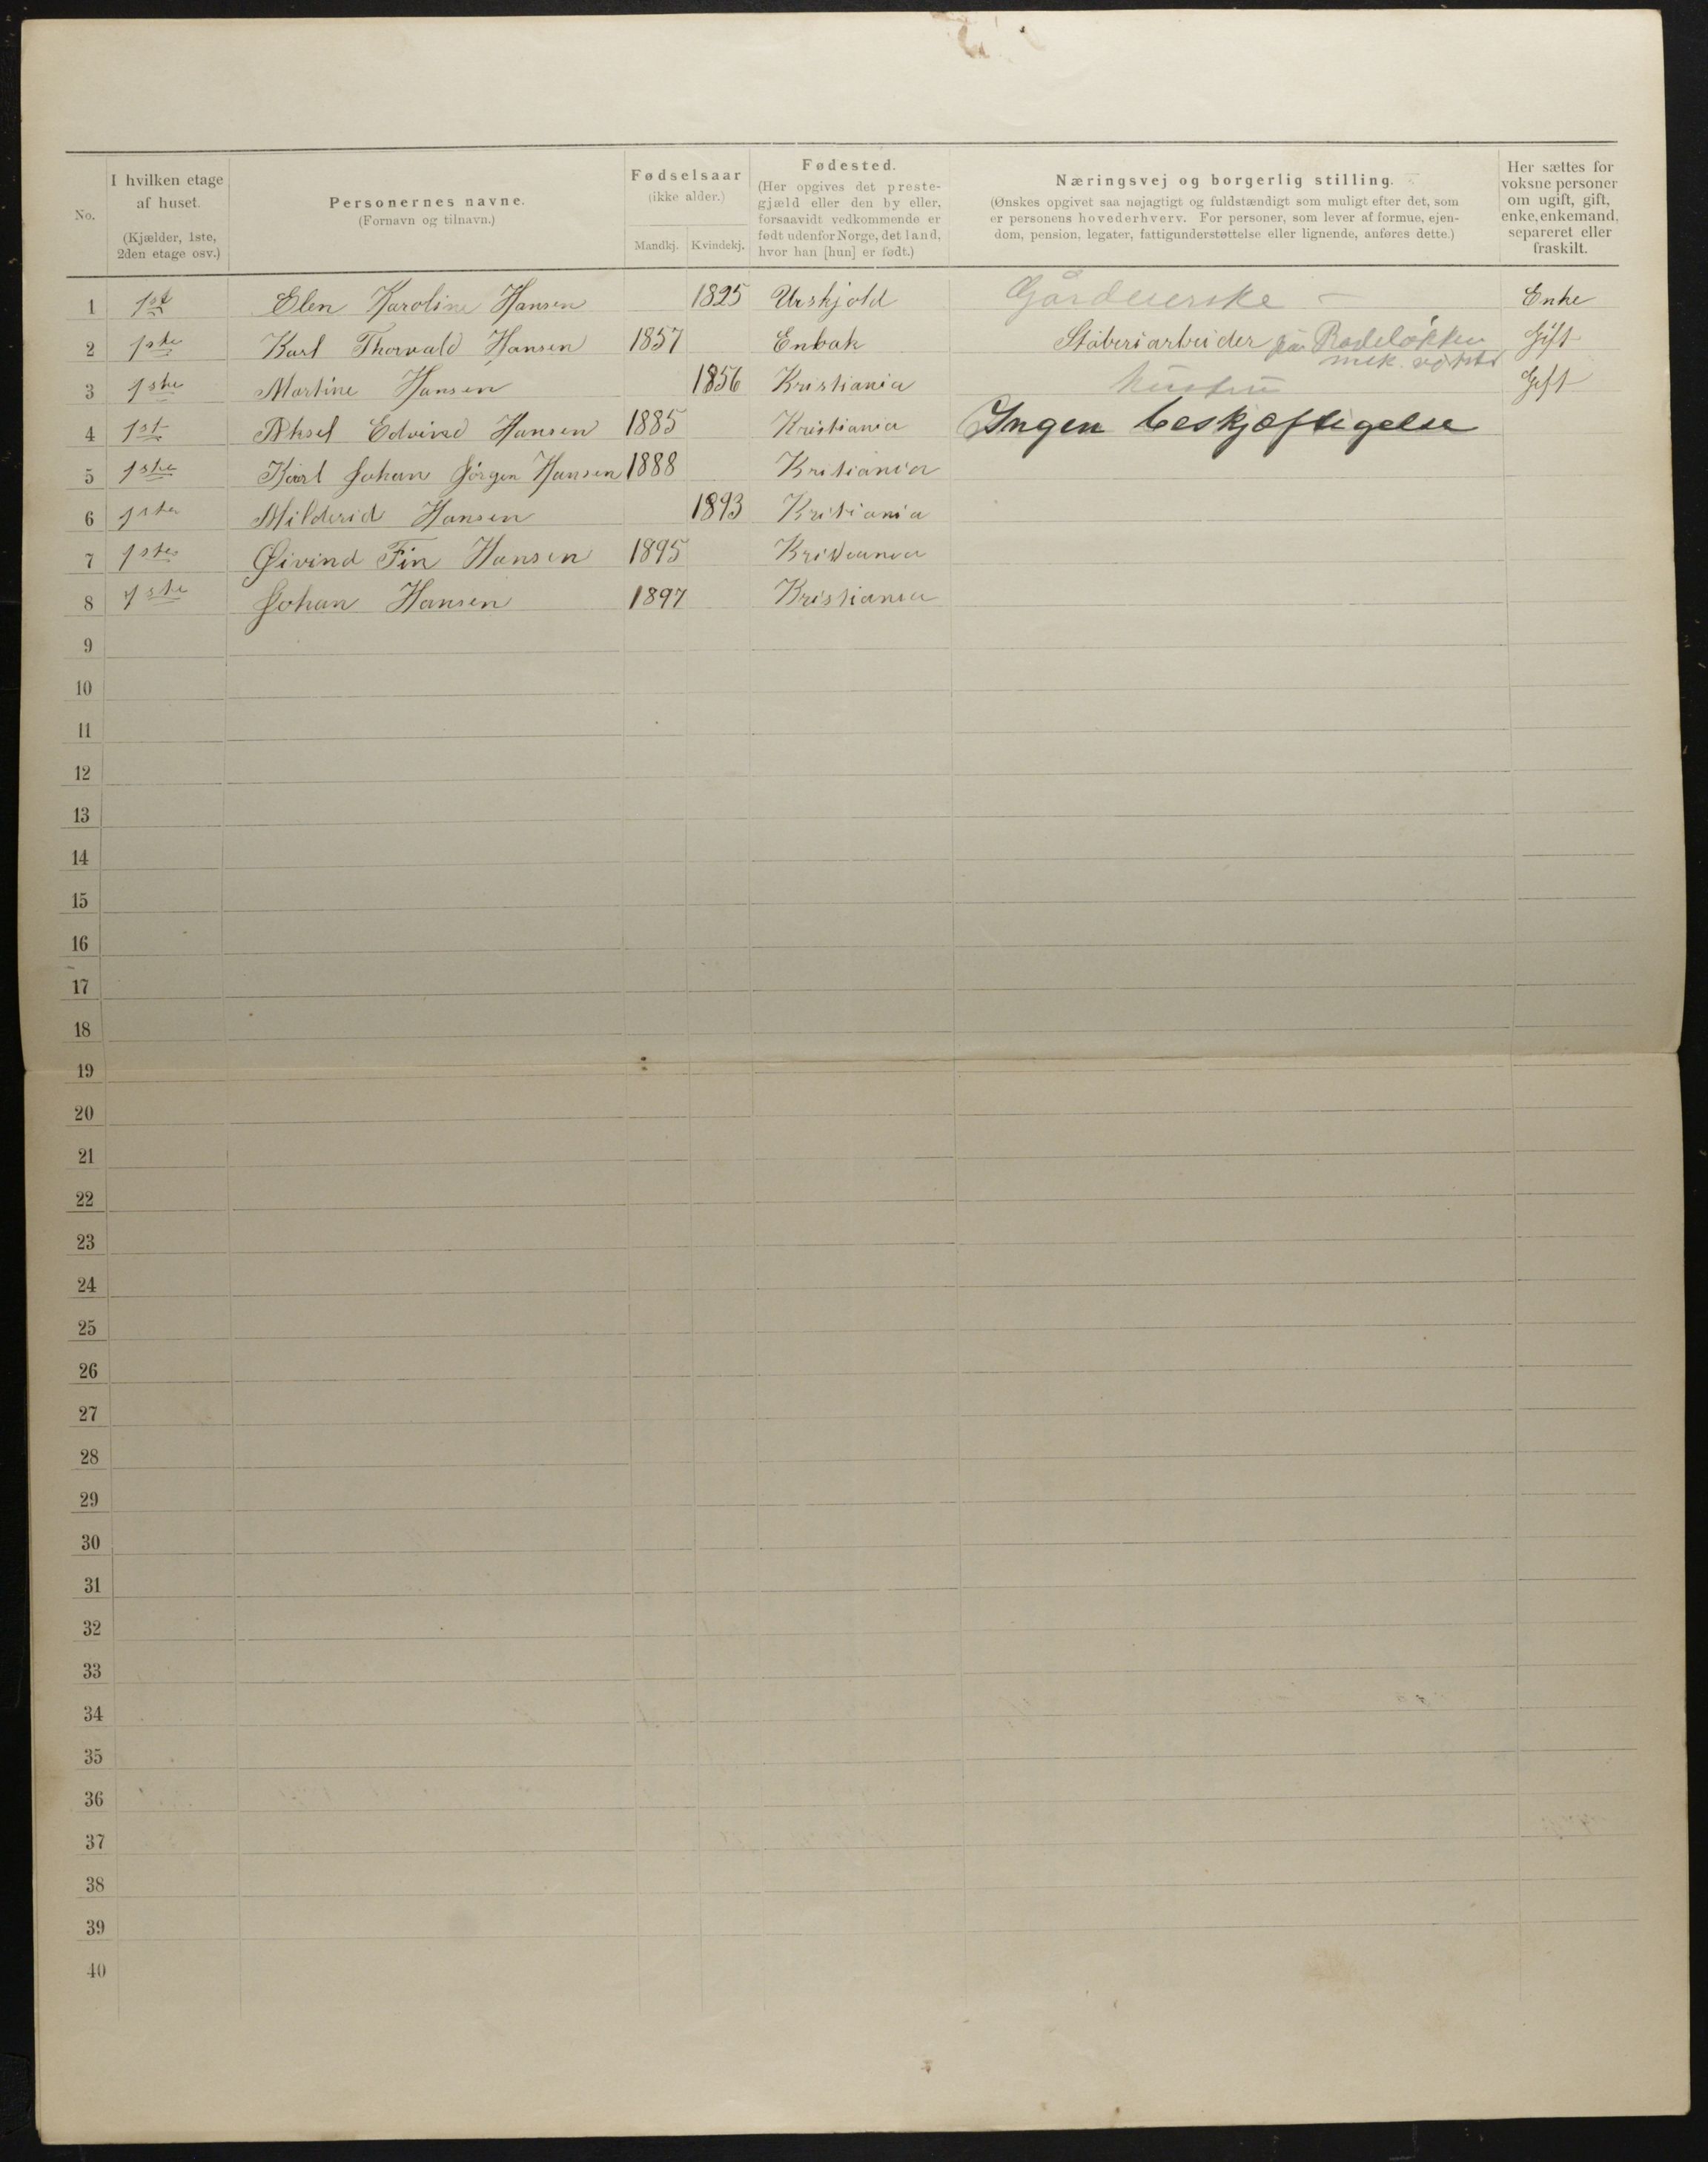 No.
I hvilken etage af huset.
(Kjælder, 1ste, 2den etage osv.)
Personernes navne.
(Fornavn og tilnavn.)
Fødselsaar
(ikke alder.)
Mandkj. Kvindekj.
Fødested.
(Her opgives det preste-
gjæld eller den by eller,
forsaavidt vedkommende er
født udenfor Norge, det land,
hvor han [hun] er født.)
Næringsvej og borgerlig stilling.
(Ønskes opgivet saa nøjagtigt og fuldstændigt som muligt efter det, som
er personens hovederhverv. For personer, som lever af formue, ejen-
dom, pension, legater, fattigunderstøttelse eller lignende, anføres dette.)
Her sættes for
voksne personer
om ugift, gift,
enke, enkemand,
separeret eller
fraskilt.
1 1st Elen Karoline Hansen 1825 Urskjold Gårdeierske — Enke
2 1ste Karl Thorvald Hansen 1857 Enbak Støberiarbeider på Rodeløkken Gift
mek. 
3 1ste Martine Hansen 1856 Kristiania hustru Gift
4 1st Aksel Edvind Hansen 1885 Kristiania Ingen beskjæftigelse
5 1ste Karl Johan Jørgen Hansen 1888 Kritiania
6 1ste Milderid Hansen 1893 Kritiania
7 1ste Øivind Fin Hansen 1895 Kristiania
8 1ste Johan Hansen 1897 Kristiania
9
10
11
12
13
14
15
16
17
18
19
20
21
22
23
24
25
26
27
28
29
30
31
32
33
34
35
36
37
38
39
40